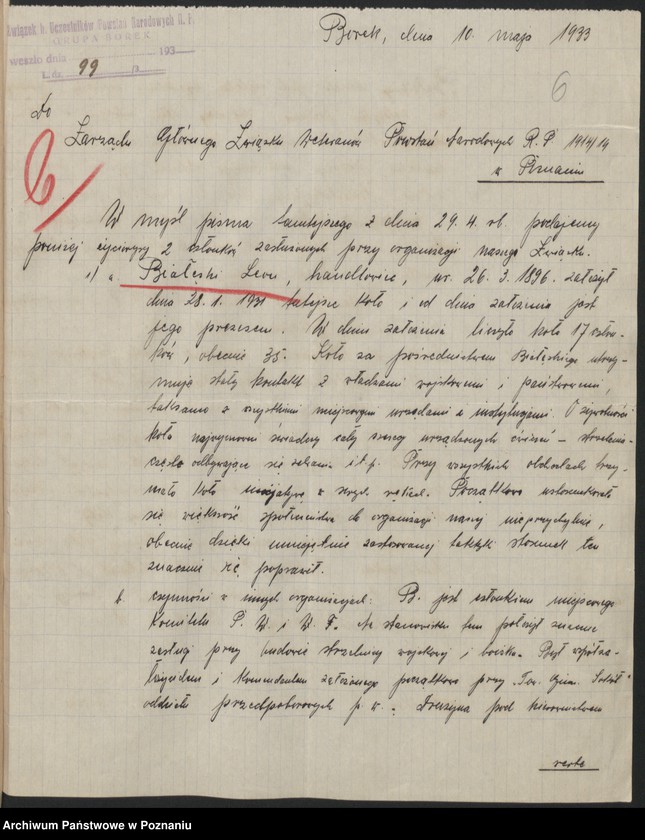 Związek b. Uczestników Powstań Narodowych R. P.
GRUPA BOREK
weszło dnia 193
L. dz. 99
Borek, dnia 10. maja 1933
6
Do
Zarządu Głównego Związku Weteranów Powstań Narodowych R. P. 1914/19
w Poznaniu
6/
W myśl pisma tamtejszego z dnia 29. 4. rb. podajemy
poniżej życiorysy 2 członków zasłużonych przy organizacji naszego Związku.
1/ a. Białęski Leon, handlowiec, ur. 26. 3. 1896. założył
dnia 28. 1. 1931 tutejsze koło i od dnia założenia jest
jego prezesem. W dniu założenia liczyło koło 17 człon-
ków, obecnie 35. Koło za pośrednictwem Białęskiego utrzy-
muje stały kontakt z władzami wojskowemi i państwowemi,
taksamo z wszystkimi miejscowymi urzędami i instytucjami. O żywotności
koła najwymowniej świadczy cały szereg urządzonych ćwiczeń – strzelanie
często odbywające się zebrania i t. p. Przy wszystkich obchodach trzy-
mało koło inicjatywę w swych rękach. Początkowo ustosunkowała
się większość społeczeństwa do organizacji naszej nieprzychylnie,
obecnie dzięki umiejętnie zastosowanej taktyki stosunek ten
znacznie się poprawił.
b. czynności w innych organizacjach: B. jest członkiem miejscowego
Komitetu P. W. i W. F. Na stanowisku tem położył znaczne
zasługi przy budowie strzelnicy wojskowej i boiska. Był współza-
łożycielem i Komendantem założonego początkowo przy "Tow. Gimn. Sokół"
oddziału przedpoborowych p. w. Drużyna pod kierownictwem
verte
Archiwum Państwowe w Poznaniu